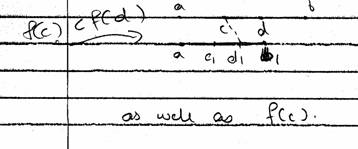 a b
f(c) < f(d) c d
a c₁ d₁ b₁
as well as f(c).